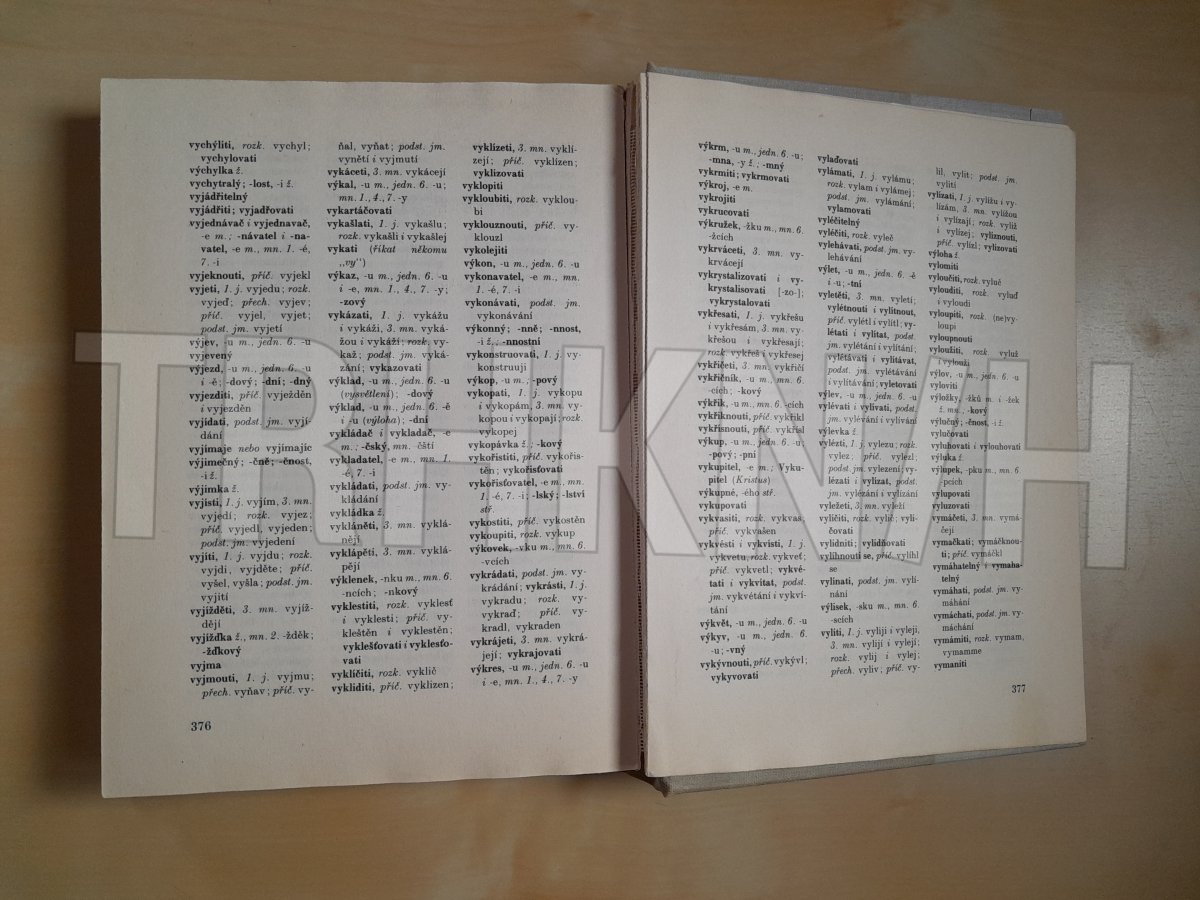 vychýliti, rozk. vychyl;
vychylovati
výchylka ž.
vychytralý; -lost, -i ž.
vyjádřitelný
vyjádřiti; vyjadřovati
vyjednávač i vyjednavač,
-e m.; -návatel i -na-
vatel, -e m., mn. 1. -é,
7. -i
vyjeknouti, příč. vyjekl
vyjeti, 1. j. vyjedu; rozk.
vyjeď; přech. vyjev;
příč. vyjel, vyjet;
podst. jm. vyjetí
výjev, -u m., jedn. 6. -u
vyjevený
výjezd, -u m., jedn. 6. -u
i -ě; -dový; -dní; -dný
vyjezditi, příč. vyježděn
i vyjezděn
vyjídati, podst. jm. vyjí-
dání
vyjímaje nebo vyjímajíc
výjimečný; -čně; -čnost,
-i ž.
výjimka ž.
vyjísti, 1. j. vyjím, 3. mn.
vyjedí; rozk. vyjez;
příč. vyjedl, vyjeden;
podst. jm. vyjedení
vyjíti, 1. j. vyjdu; rozk.
vyjdi, vyjděte; příč.
vyšel, vyšla; podst. jm.
vyjití
vyjížděti, 3. mn. vyjíž-
dějí
vyjížďka ž., mn. 2. -žděk;
-žďkový
vyjma
vyjmouti, 1. j. vyjmu;
přech. vyňav; příč. vy-
ňal, vyňat; podst. jm.
vynětí i vyjmutí
vykáceti, 3. mn. vykácejí
výkal, -u m., jedn. 6. -u;
mn. 1., 4., 7. -y
vykartáčovati
vykašlati, 1. j. vykašlu;
rozk. vykašli i vykašlej
vykati (říkat někomu
„vy“)
výkaz, -u m., jedn. 6. -u
i -e, mn. 1., 4., 7. -y;
-zový
vykázati, 1. j. vykážu
i vykáži, 3. mn. vyká-
žou i vykáží; rozk. vy-
kaž; podst. jm. vyká-
zání; vykazovati
výklad, -u m., jedn. 6. -u
(vysvětlení); -dový
výklad, -u m., jedn. 6. -ě
i -u (výloha); -dní
vykládač i vykladač, -e
m.; -čský, mn. -čští
vykladatel, -e m., mn. 1.
-é, 7. -i
vykládati, podst. jm. vy-
kládání
vykládka ž.
vykláněti, 3. mn. vyklá-
nějí
vyklápěti, 3. mn. vyklá-
pějí
výklenek, -nku m., mn. 6.
-ncích; -nkový
vyklestiti, rozk. vyklesť
i vyklesti; příč. vy-
kleštěn i vyklestěn;
vyklešťovati i vyklesťo-
vati
vyklíčiti, rozk. vyklič
vykliditi, příč. vyklizen;
vyklízeti, 3. mn. vyklí-
zejí; příč. vyklízen;
vyklizovati
vyklopiti
vykloubiti, rozk. vyklou-
bi
vyklouznouti, příč. vy-
klouzl
vykolejiti
výkon, -u m., jedn. 6. -u
vykonavatel, -e m., mn.
1. -é, 7. -i
vykonávati, podst. jm.
vykonávání
výkonný; -nně; -nnost,
-i ž.; -nnostní
vykonstruovati, 1. j. vy-
konstruuji
výkop, -u m.; -pový
vykopati, 1. j. vykopu
i vykopám, 3. mn. vy-
kopou i vykopají; rozk.
vykopej
vykopávka ž.; -kový
vykořistiti, příč. vykořis-
těn; vykořisťovati
vykořisťovatel, -e m., mn.
1. -é, 7. -i; -lský; -lství
stř.
vykostiti, příč. vykostěn
vykoupiti, rozk. vykup
výkovek, -vku m., mn. 6.
-vcích
vykrádati, podst. jm. vy-
krádání; vykrásti, 1. j.
vykradu; rozk. vy-
kraď; příč. vy-
kradl, vykraden
vykrájeti, 3. mn. vykrá-
její; vykrajovati
výkres, -u m., jedn. 6. -u
i -e, mn. 1., 4., 7. -y
376
výkrm, -u m., jedn. 6. -u;
-mna, -y ž.; -mný
vykrmiti; vykrmovati
výkroj, -e m.
vykrojiti
vykrucovati
výkružek, -žku m., mn. 6.
-žcích
vykrváceti, 3. mn. vy-
krvácejí
vykrystalizovati i vy-
krystalisovati [-zo-];
vykrystalovati
vykřesati, 1. j. vykřešu
i vykřesám, 3. mn. vy-
křešou i vykřesají;
rozk. vykřeš i vykřesej
vykřičeti, 3. mn. vykřičí
vykřičník, -u m., mn. 6.
-cích; -kový
výkřik, -u m., mn. 6. -cích
vykřiknouti, příč. vykřikl
vykřísnouti, příč. vykřísl
výkup, -u m., jedn. 6. -u;
-pový; -pní
vykupitel, -e m.; Vyku-
pitel (Kristus)
výkupné, -ého stř.
vykupovati
vykvasiti, rozk. vykvas;
příč. vykvašen
vykvésti i vykvísti, 1. j.
vykvetu, rozk. vykveť;
příč. vykvetl; vykvé-
tati i vykvítat, podst.
jm. vykvétání i vykví-
tání
výkvět, -u m., jedn. 6. -u
výkyv, -u m., jedn. 6.
-u; -vný
vykývnouti, příč. vykývl;
vykyvovati
vylaďovati
vylámati, 1. j. vylámu;
rozk. vylam i vylámej;
podst. jm. vylámání;
vylamovati
vyléčitelný
vyléčiti, rozk. vyleč
vylehávati, podst. jm. vy-
lehávání
výlet, -u m., jedn. 6. -ě
i -u; -tní
vyletěti, 3. mn. vyletí;
vylétnouti i vylítnout,
příč. vylétl i vylítl; vy-
létati i vylítat, podst.
jm. vylétání i vylítání;
vylétávati i vylítávat,
podst. jm. vylétávání
i vylítávání; vyletovati
výlev, -u m., jedn. 6. -u
vylévati i vylívati, podst.
jm. vylévání i vylívání
výlevka ž.
vylézti, 1. j. vylezu; rozk.
vylez; příč. vylezl;
podst. jm. vylezení; vy-
lézati i vylízat, podst.
jm. vylézání i vylízání
vyležeti, 3. mn. vyleží
vylíčiti, rozk. vylič; vyli-
čovati
vylidniti; vylidňovati
vylíhnouti se, příč. vylíhl
se
vylínati, podst. jm. vylí-
nání
výlisek, -sku m., mn. 6.
-scích
vylíti, 1. j. vyliji i vyleji,
3. mn. vylijí i vylejí;
rozk. vylij i vylej;
přech. vyliv; příč. vy-
lil, vylit; podst. jm.
vylití
vylízati, 1. j. vylížu i vy-
lízám, 3. mn. vylížou
i vylízají; rozk. vyliž
i vylízej; vylíznouti,
příč. vylízl; vylizovati
výloha ž.
vylomiti
vyloučiti, rozk. vyluč
vylouditi, rozk. vyluď
i vyloudi
vyloupiti, rozk. (ne)vy-
loupi
vyloupnouti
vyloužiti, rozk. vyluž
i vylouži
výlov, -u m., jedn. 6. -u
vyloviti
výložky, -žků m. i -žek
ž. mn., -kový
výlučný; -čnost, -i ž.
vylučovati
vyluhovati i vylouhovati
výluka ž.
výlupek, -pku m., mn. 6.
-pcích
vylupovati
vyluzovati
vymáčeti, 3. mn. vymá-
čejí
vymačkati; vymáčknou-
ti; příč. vymáčkl
vymáhatelný i vymaha-
telný
vymáhati, podst. jm. vy-
máhání
vymáchati, podst. jm. vy-
máchání
vymámiti, rozk. vymam,
vymamme
vymaniti
377
TRHKNIH